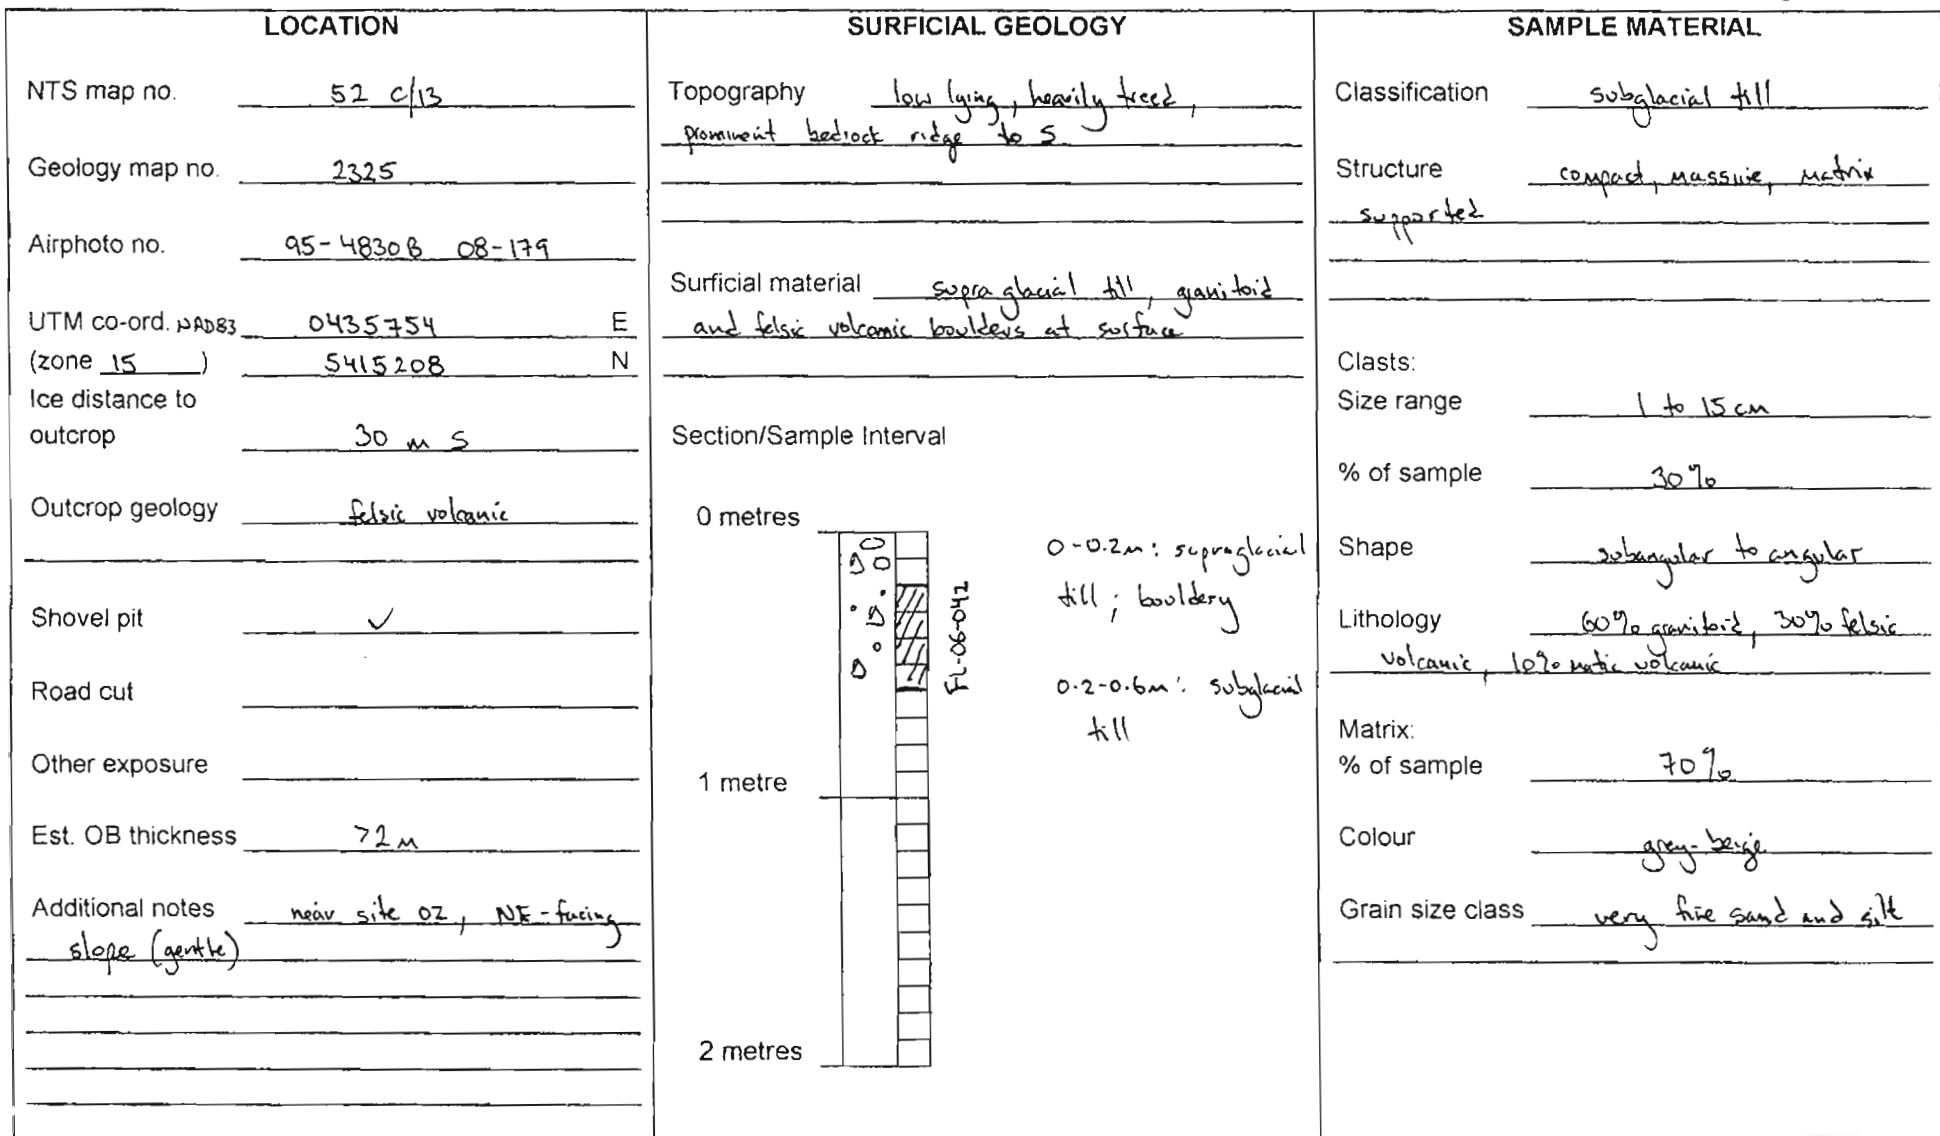 LOCATION
NTS map no. 52 C/13
Geology map no. 2325
Airphoto no. 95-4830B 08-179
UTM co-ord. NAD83 0435754 E
(zone 15 ) 5415208 N
Ice distance to
outcrop 30 m S
Outcrop geology felsic volcanic
Shovel pit ✓
Road cut
Other exposure
Est. OB thickness >2m
Additional notes near site 02, NE-facing
slope (gentle)
SURFICIAL GEOLOGY
Topography low lying, heavily treed,
prominent bedrock ridge to S
Surficial material supraglacial till, granitoid
and felsic volcanic boulders at surface
Section/Sample Interval
0 metres
0-0.2m: supraglacial
till; bouldery
FL-06-042
0.2-0.6m: subglacial
till
1 metre
2 metres
SAMPLE MATERIAL
Classification subglacial till
Structure compact, massive, matrix
supported
Clasts:
Size range 1 to 15 cm
% of sample 30%
Shape subangular to angular
Lithology 60% granitoid, 30% felsic
volcanic, 10% mafic volcanic
Matrix:
% of sample 70%
Colour grey-beige
Grain size class very fine sand and silt